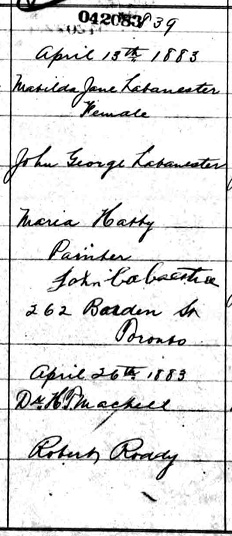 042083 39
April 13th 1883
Matilda Jane Labanester
Female
John George Labanester
Maria Hatby
Painter
John
262 Borden St
Toronto
April 26th 1883
Dr. H T Machell
Robert Roddy